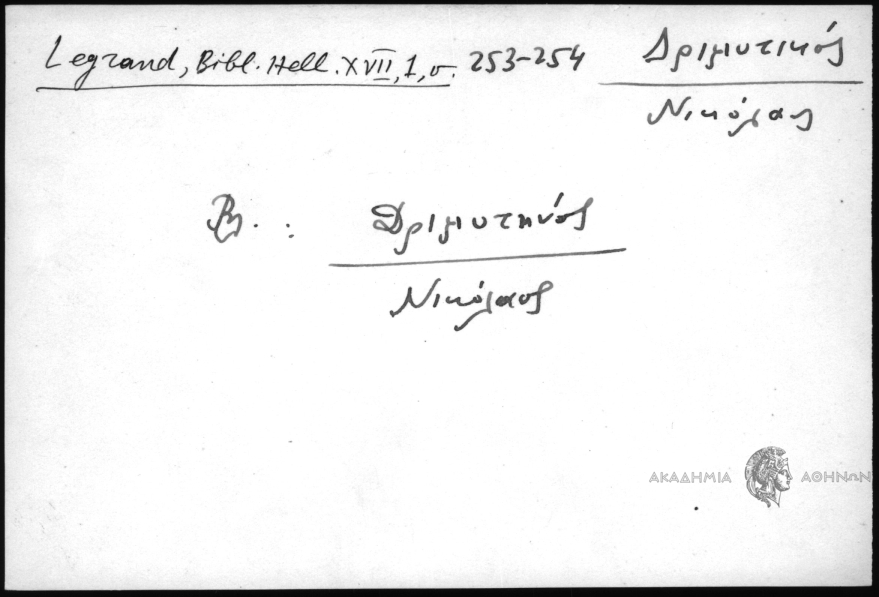 Legrand, Bibl. Hell. XVII, 1, σ. 253-254
Δριμυτικός
Νικόλαος
Βλ. :
Δριμυτηνός
Νικόλαος
ΑΚΑΔΗΜΙΑ ΑΘΗΝΩΝ